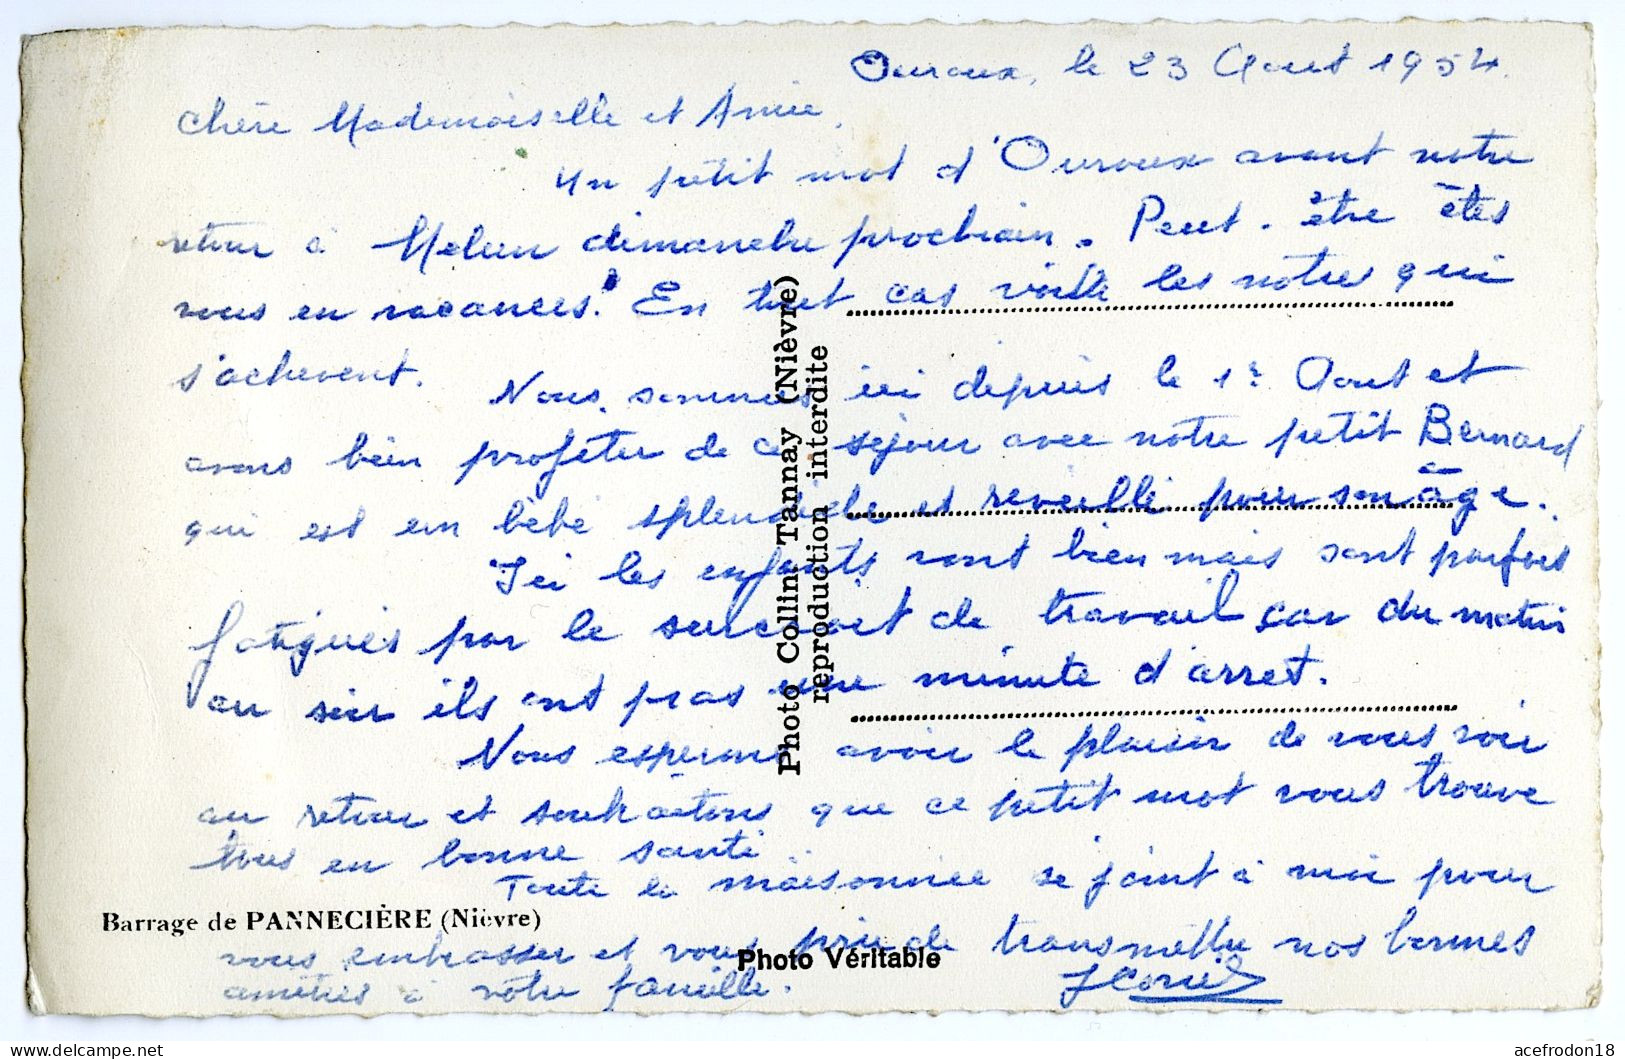 Ouroux, le 23 Aout 1954.
Chère Mademoiselle et Amie,
Un petit mot d'Ouroux avant notre
retour à Melun dimanche prochain. Peut-être êtes
vous en vacances. En tout cas voilà les notres qui
s'achevent.
Nous sommes ici depuis le 1er Aout et
avons bien profiter de ce séjour avec notre petit Bernard
qui est un bébé splendide et reveillé pour son âge.
Ici les enfants vont bien mais sont parfois
fatigués par le surcroit de travail car du matin
au soir ils ont pas une minute d'arret.
Nous esperons avoir le plaisir de vous voir
au retour et souhaitons que ce petit mot vous trouve
tous en bonne santé.
Toute la maisonnée se joint à moi pour
vous embrasser et vous prie de transmettre nos bonnes
amitiés à votre famille.
Barrage de PANNECIÈRE (Nièvre)
Photo Véritable
Photo Collin Tannay (Nièvre)
reproduction interdite
acefrodon18